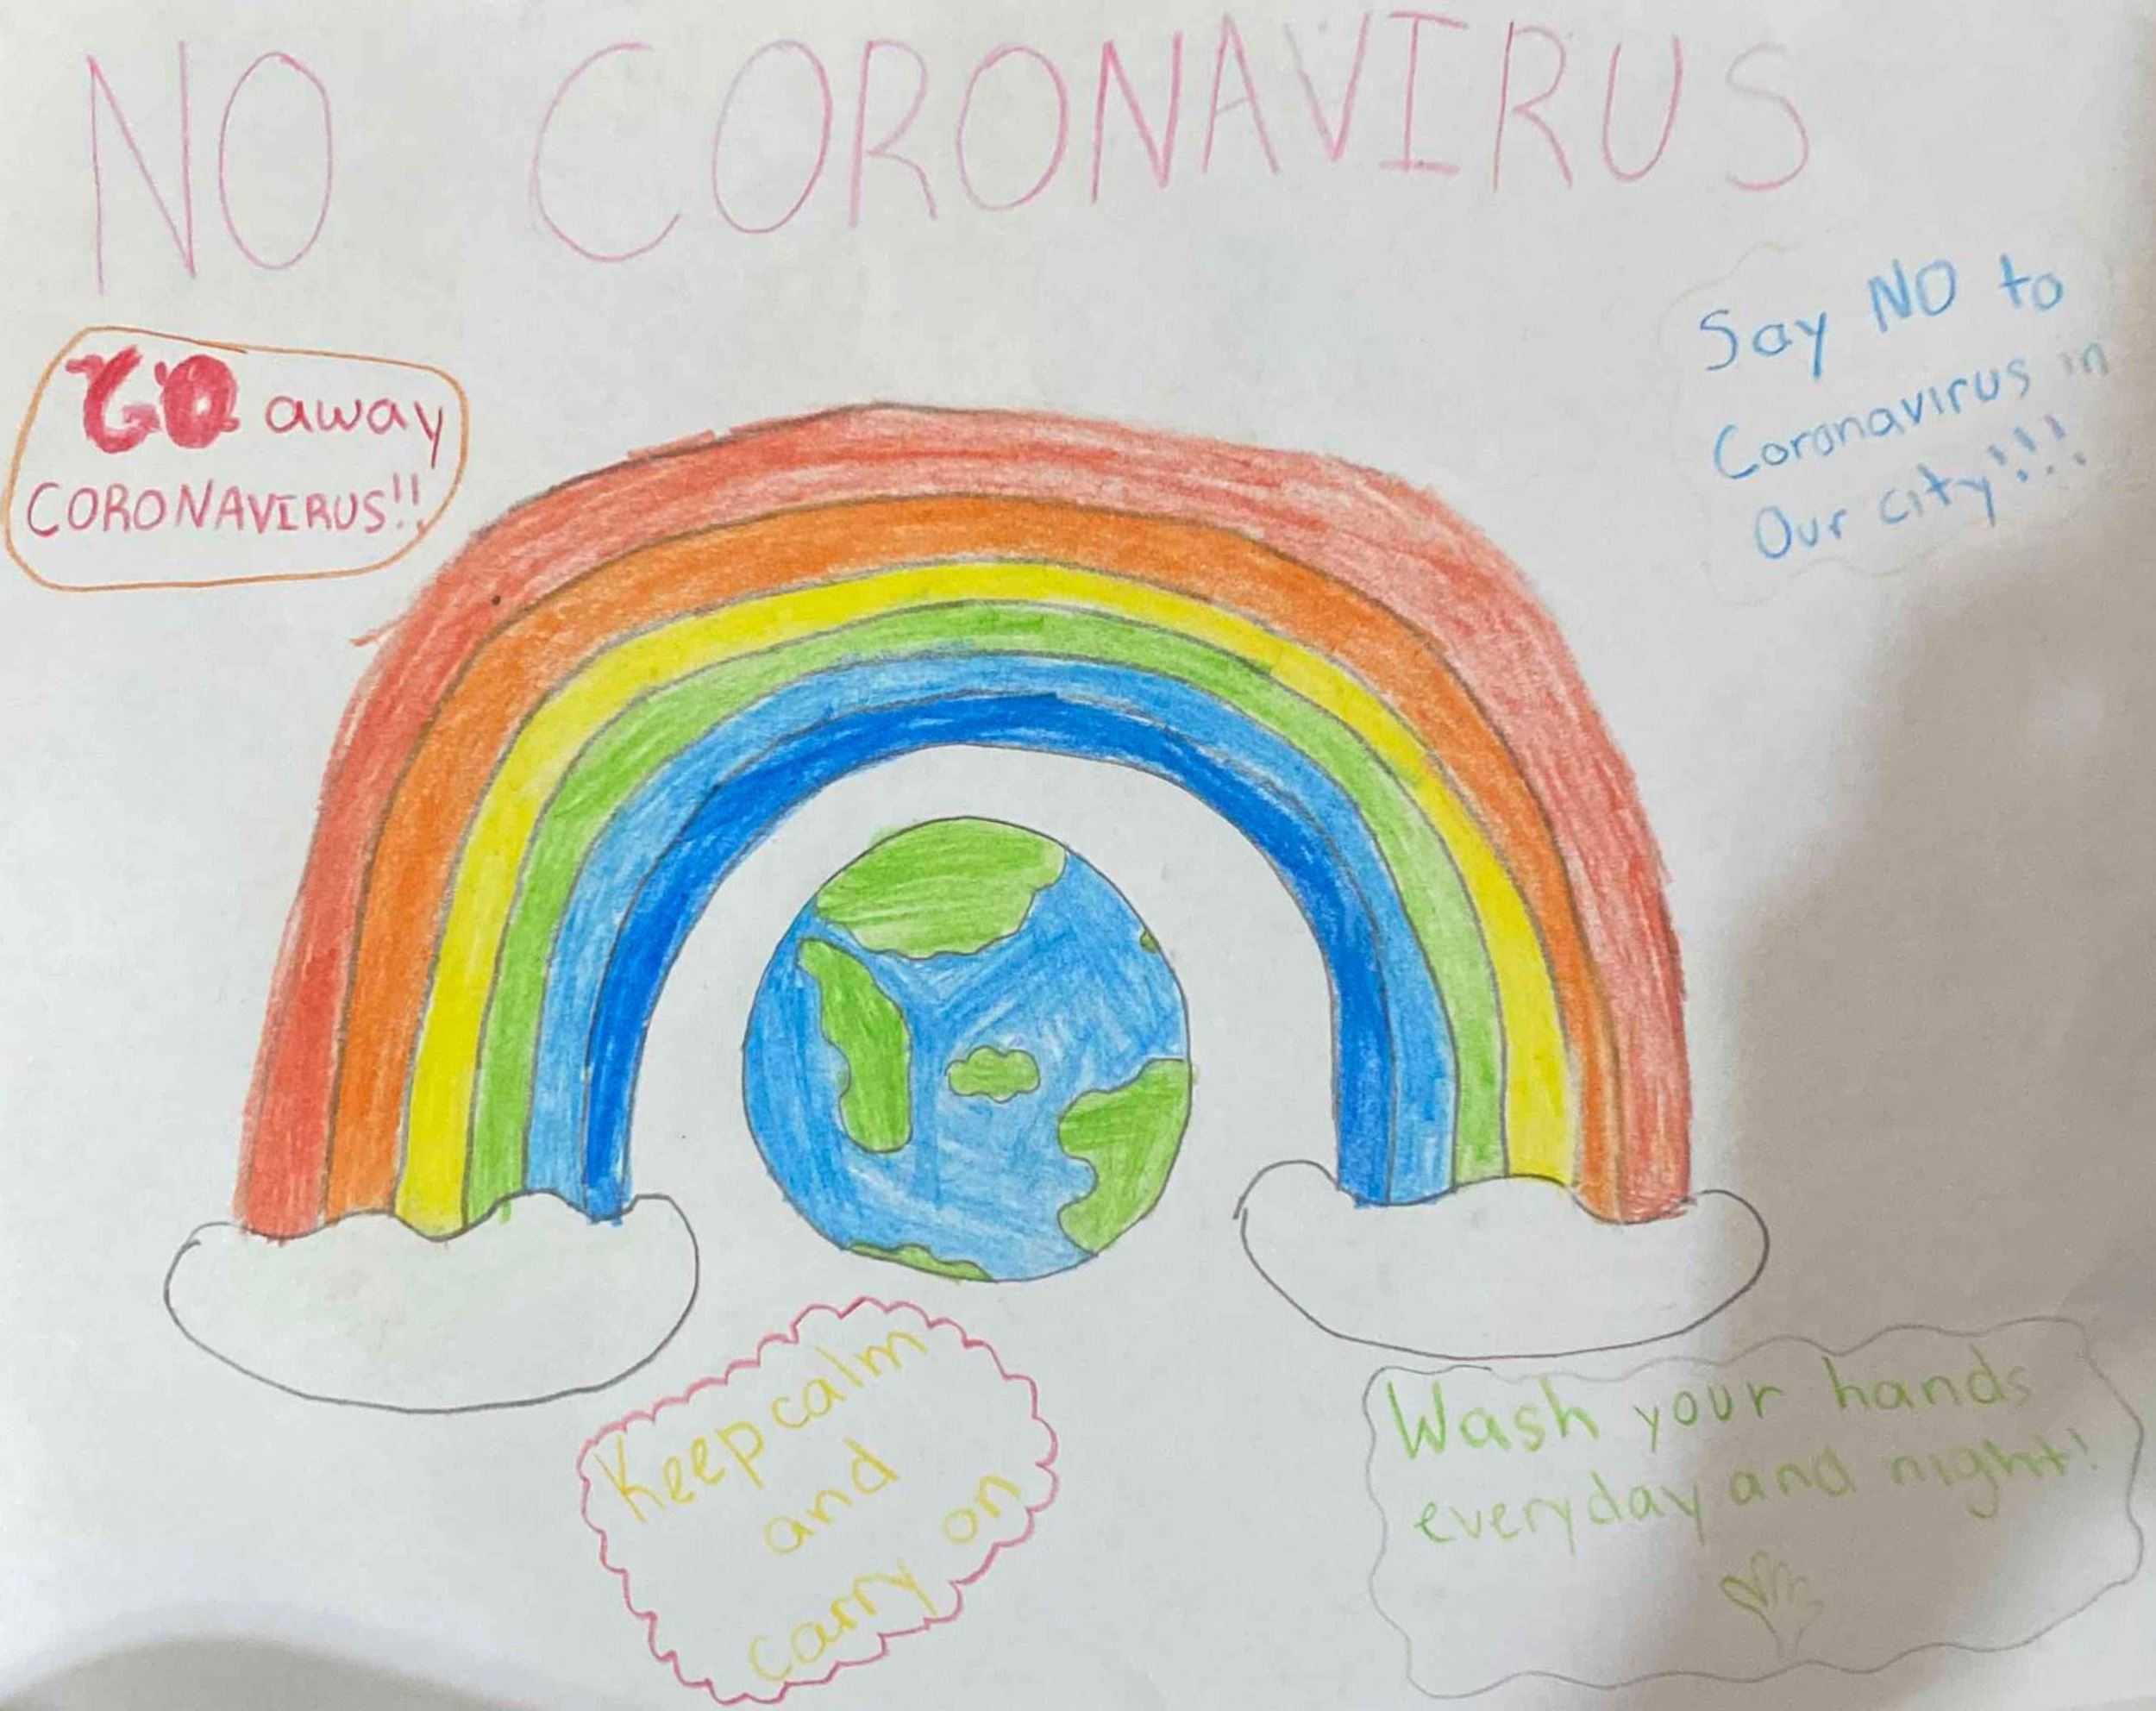 NO CORONAVIRUS
GO away
CORONAVIRUS!!
Say NO to
Coronavirus in
Our city!!!
Keep calm
and
carry on
Wash your hands
everyday and night!